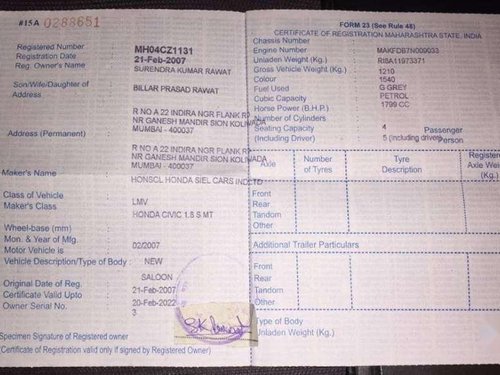 #15A 0288651
Registered Number MH04CZ1131
Registration Date 21-Feb-2007
Reg. Owner's Name SURENDRA KUMAR RAWAT
Son/Wife/Daughter of BILLAR PRASAD RAWAT
Address
R NO A 22 INDIRA NGR FLANK RD
Address (Permanent) NR GANESH MANDIR SION KOLIWADA
MUMBAI - 400037
R NO A 22 INDIRA NGR FLANK RD
NR GANESH MANDIR SION KOLIWADA
MUMBAI - 400037
Maker's Name HONSCL HONDA SIEL CARS IND LTD
Class of Vehicle LMV
Maker's Class HONDA CIVIC 1.8 S MT
Wheel-base (mm)
Mon. & Year of Mfg. 02/2007
Motor Vehicle is NEW
Vehicle Description/Type of Body : SALOON
Original Date of Reg. 21-Feb-2007
Certificate Valid Upto 20-Feb-2022
Owner Serial No. 3
Specimen Signature of Registered owner
(Certificate of Registration valid only if signed by Registered Owner)
FORM 23 (See Rule 48)
CERTIFICATE OF REGISTRATION MAHARASHTRA STATE, INDIA
Chassis Number
Engine Number MAKFDB7N009033
Unladen Weight (Kg.) R18A11973371
Gross Vehicle Weight (Kg.) 1210
Colour 1540
Fuel Used G GREY
Cubic Capacity PETROL
Horse Power (B.H.P.) 1799 CC
Number of Cylinders
Seating Capacity 4 Passenger
(Including Driver) 5 (Including driver)
Axle Number of Tyres Tyre Description Registered Axle Weight (Kg.)
Front
Rear
Tandom
Other
Additional Trailer Particulars
Front
Rear
Tandom
Other
Type of Body
Unladen Weight (Kg.)